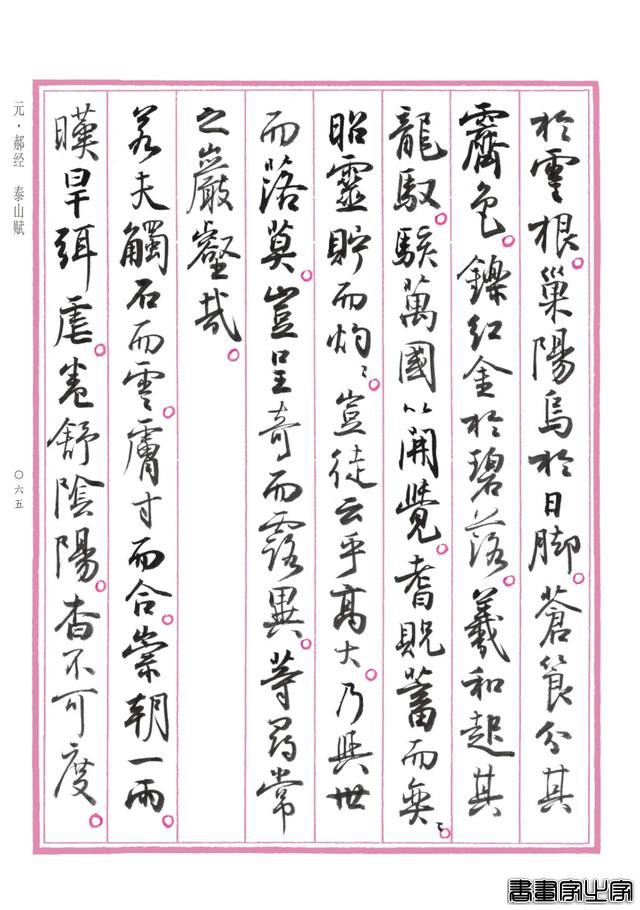 於雲根。巢陽烏於日脚。蒼筤分其
霽色。鑠紅金於碧落。羲和起其
龍馭。駭萬國以開覺。耆貺蓄而奕奕。
昭靈貯而灼灼。豈徒云乎高大。乃與世
而落莫。豈呈奇而露異。等尋常
之巖壑哉。
若夫觸石而雲。膚寸而合。崇朝一雨。
暵旱弭虐。卷舒陰陽。杳不可度。
元·郝经 泰山赋
〇六五
書畫家必字